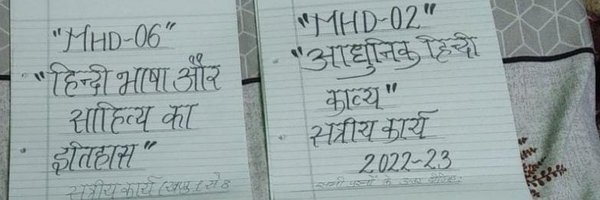 "MHD-06"
"हिन्दी भाषा और
साहित्य का
इतिहास"
सत्रीय कार्य
"MHD-02"
"आधुनिक हिन्दी
काव्य"
सत्रीय कार्य
2022-23
सभी प्रश्नों के उत्तर